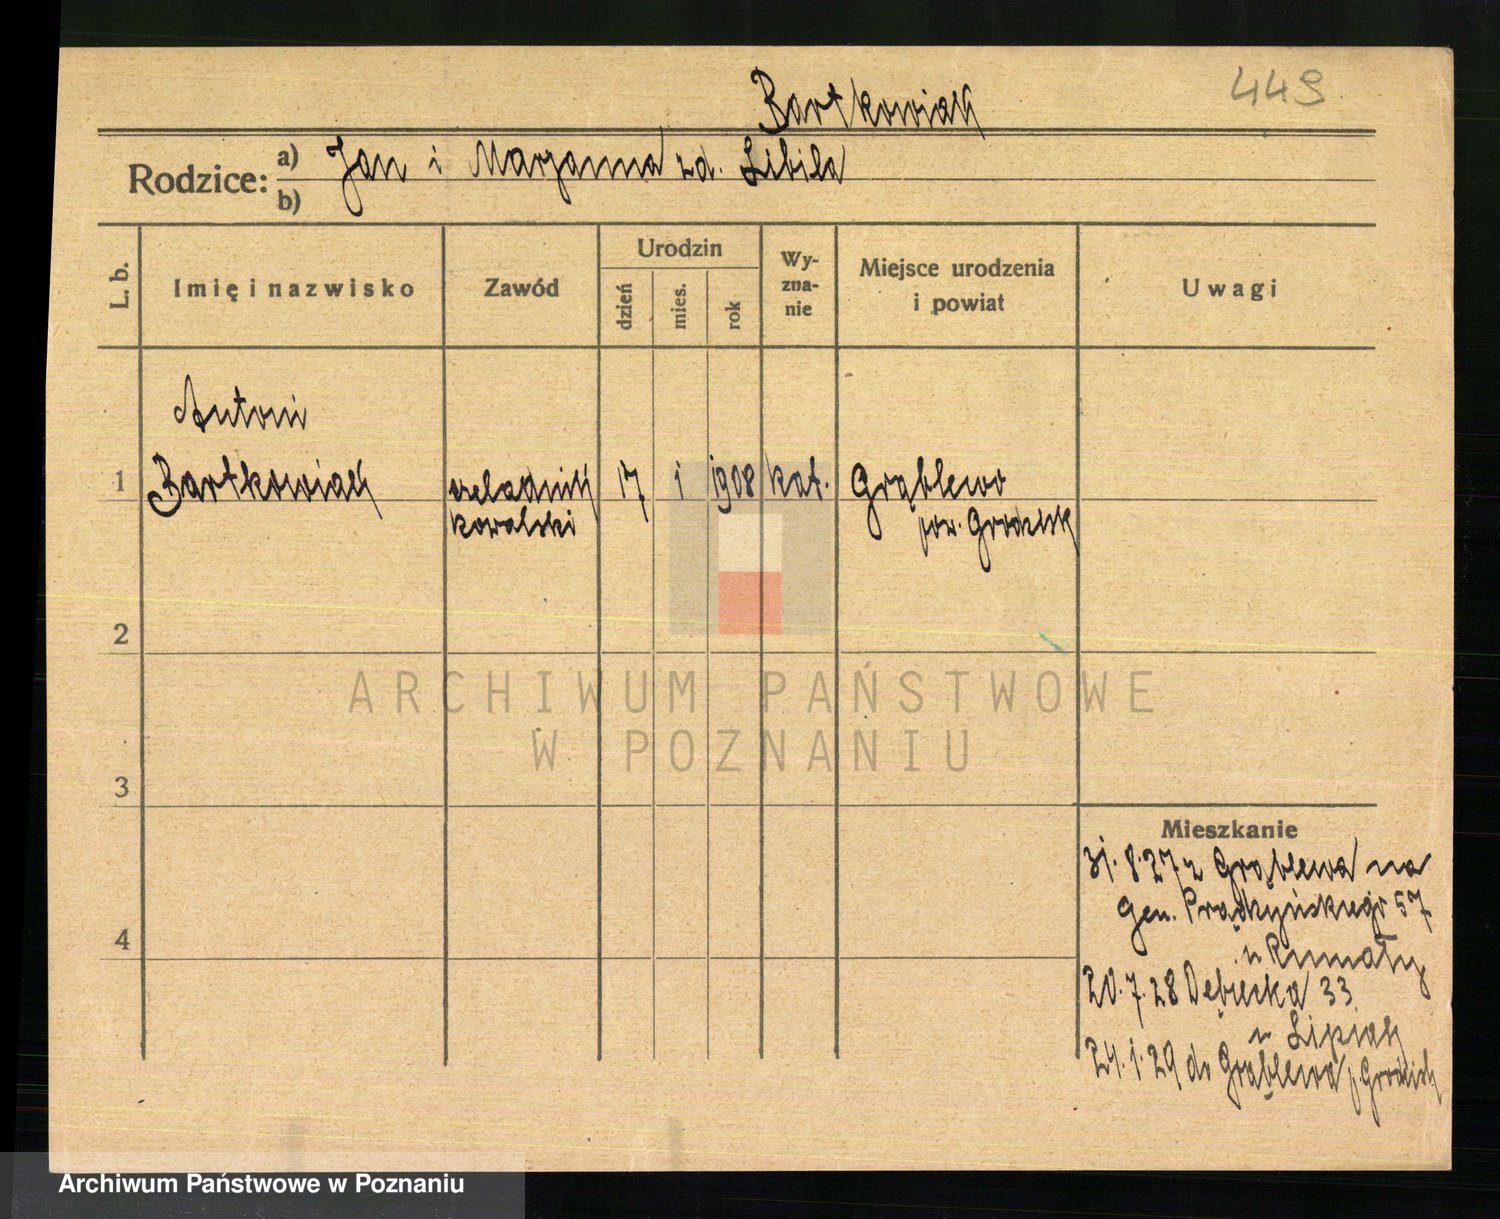 449
Bartkowiak
Rodzice:
a) Jan i Maryanna zd. Libila
b)
L. b.
Imię i nazwisko
Zawód
Urodzin
dzień
mies.
rok
Wy-
zna-
nie
Miejsce urodzenia
i powiat
Uwagi
Antoni
1 Bartkowiak czeladnik 17 1 1908 kat. Grąblewo
kowalski pow. Grodzisk
2
ARCHIWUM PAŃSTWOWE
W POZNANIU
3
Mieszkanie
31.8.27 z Grąblewa na
Gen. Prądzyńskiego 57
u
4
20.7.28 Dębiecka 33
u Lipiak
24.1.29 do Grąblewa p. Grodzisk
Archiwum Państwowe w Poznaniu